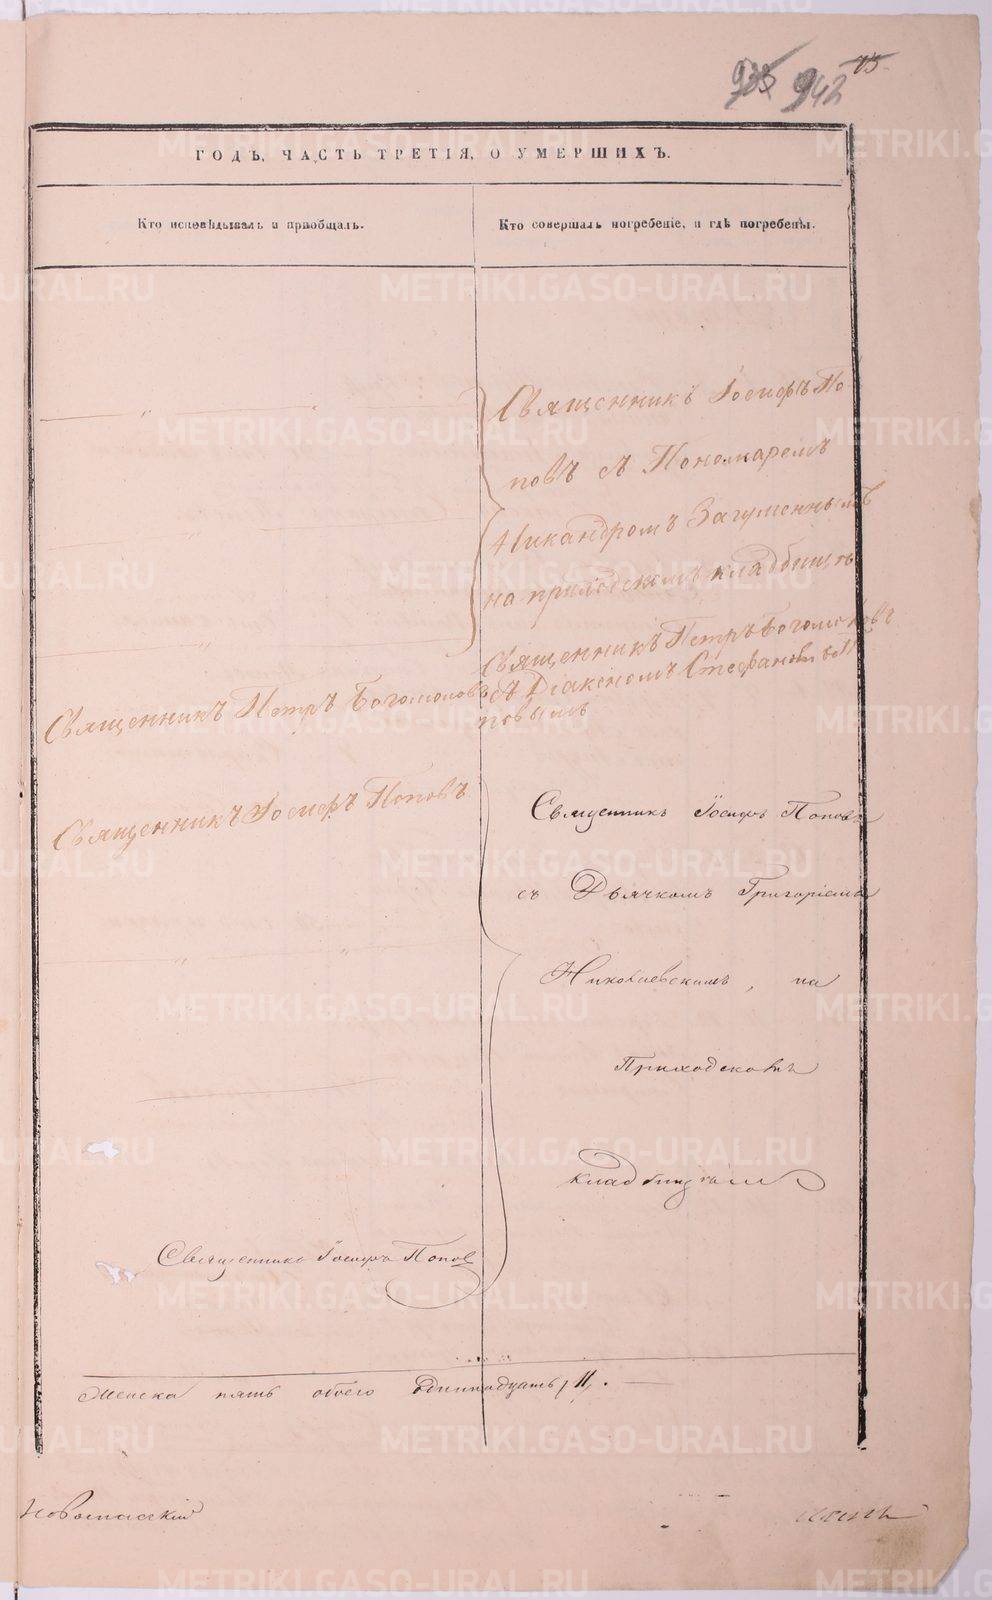 935 942 75
ГОДЪ, ЧАСТЬ ТРЕТІЯ, О УМЕРШИХЪ.
Кто исповѣдывалъ и пріобщалъ.
Кто совершалъ погребеніе, и гдѣ погребены.
Священникъ Іосифъ По
повъ съ Пономаремъ
Никандромъ Загуменнымъ
на приходскомъ кладбищѣ
Священникъ Петръ Богомоловъ
съ Діакономъ Стефаномъ По
повымъ
Священникъ Петръ Богомоловъ
Священникъ Іосифъ Поповъ
Священникъ Іосифъ Поповъ
съ Дьячкомъ Григоріемъ
Николаевскимъ, на
Приходскомъ
кладбищѣ
Священникъ Іосифъ Попов
Женска пять обоего одиннадцать, 11.
METRIKI.GASO-URAL.RU